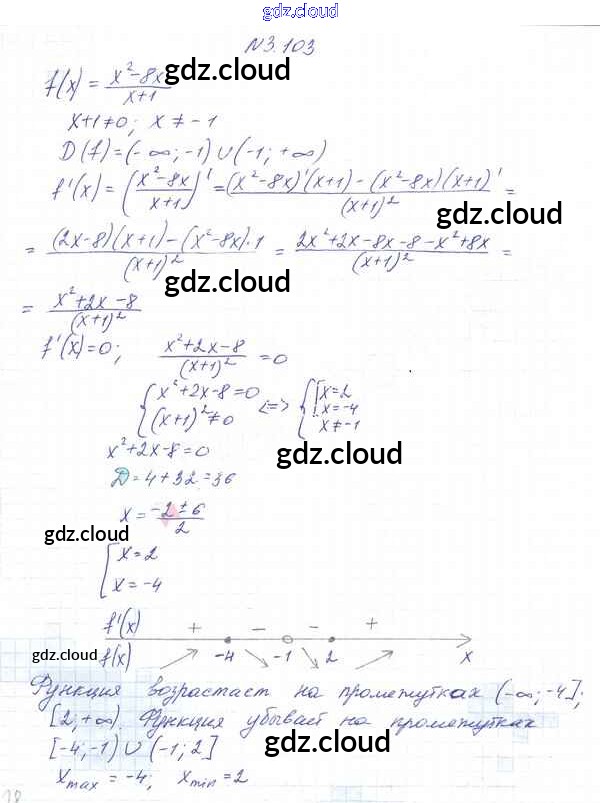 gdz.cloud
N3.103
f(x) = (x²-8x)/(x+1)
gdz.cloud
x+1≠0; x ≠ -1
D(f)=(-∞;-1)∪(-1;+∞)
f'(x) = ((x²-8x)/(x+1))' = ((x²-8x)'(x+1) - (x²-8x)(x+1)')/(x+1)² =
gdz.cloud
= ((2x-8)(x+1)-(x²-8x)·1)/(x+1)² = (2x²+2x-8x-8-x²+8x)/(x+1)² =
gdz.cloud
= (x²+2x-8)/(x+1)²
f'(x)=0; (x²+2x-8)/(x+1)² = 0
{x²+2x-8=0 {[x=2
{(x+1)²≠0 <=> {[x=-4
{x≠-1
x²+2x-8=0
gdz.cloud
D=4+32=36
x = (-2±6)/2
gdz.cloud
[x=2
[x=-4
f'(x) + - - +
gdz.cloud
f(x) -4 -1 2 x
Функция возрастаст на промежутках (-∞;-4];
[2;+∞). Функция убывает на промежутках
[-4;-1) ∪ (-1;2]
gdz.cloud
x max = -4; x min = 2